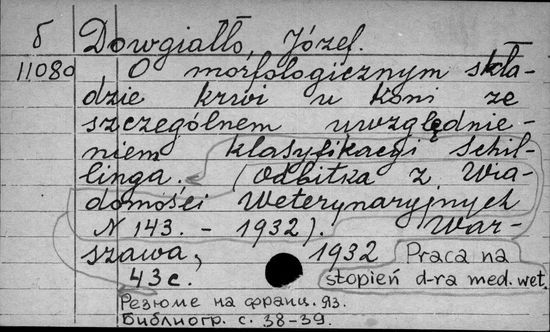 б Dowgiałło, Józef.
11080 O morfologicznym skła-
dzie krwi u koni ze
szczególnem uwzględnie-
niem klasyfikacyi Schil-
linga. (Odbitka z Wia-
domości Weterynaryjnych
N 143. - 1932). War-
szawa, 1932 Praca na
43 c. stopień d-ra med. wet.
Резюме на франц. яз.
Библиогр. с. 38-39.